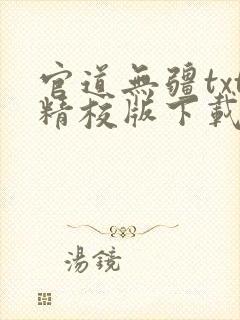 官道無疆txt
精校版下載
湯鏡